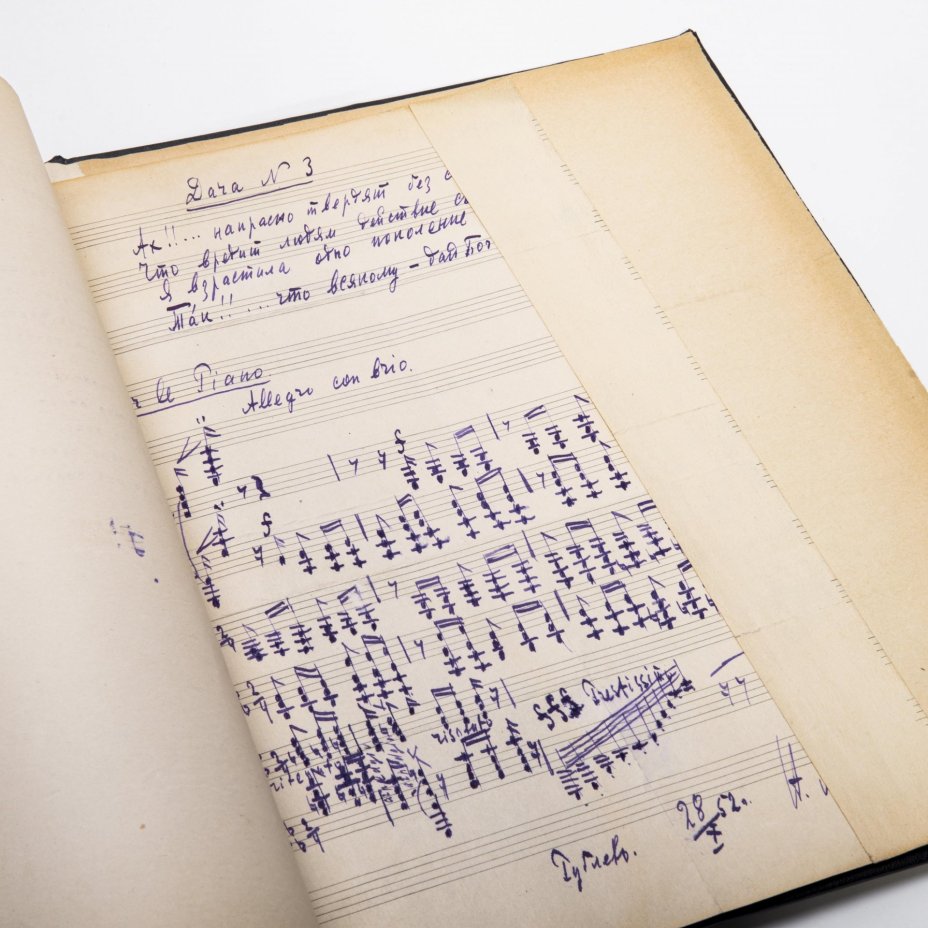 Дача N 3
Ах!!... напрасно твердят без с
Что вредит людям действие с
Я взрастила одно поколение
Та́к!! ... что всякому – дай Бог
le Piano.
Allegro con brio.
f
f
fff Prestissi
Рублево. 28/X 52.